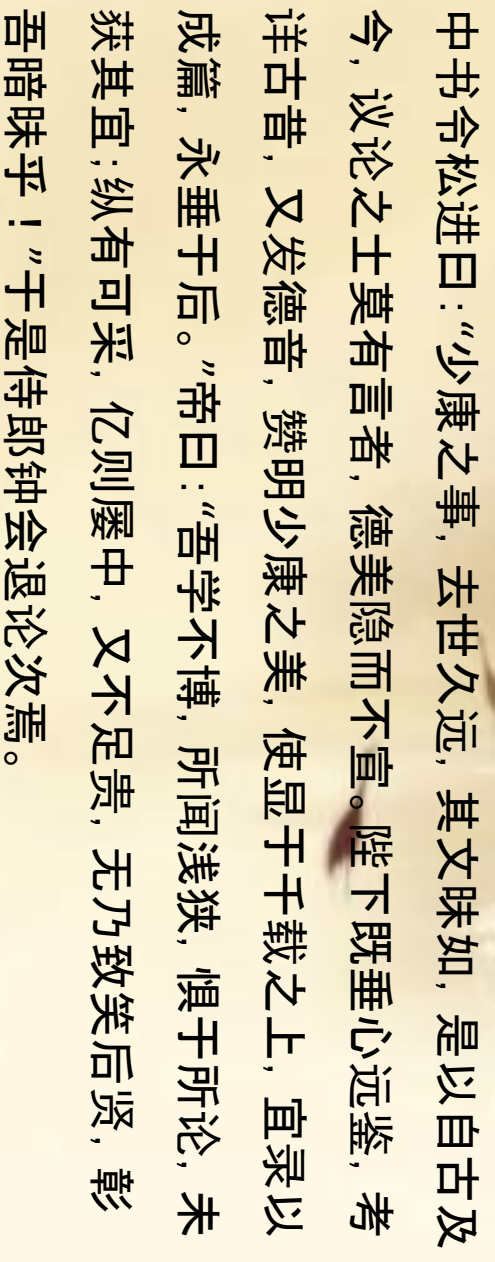 中书令松进曰：“少康之事，去世久远，其文昧如，是以自古及
今，议论之士莫有言者，德美隐而不宣。陛下既垂心远鉴，考
详古昔，又发德音，赞明少康之美，使显于千载之上，宜录以
成篇，永垂于后。”帝曰：“吾学不博，所闻浅狭，惧于所论，未
获其宜；纵有可采，亿则屡中，又不足贵，无乃致笑后贤，彰
吾暗昧乎！”于是侍郎钟会退论次焉。